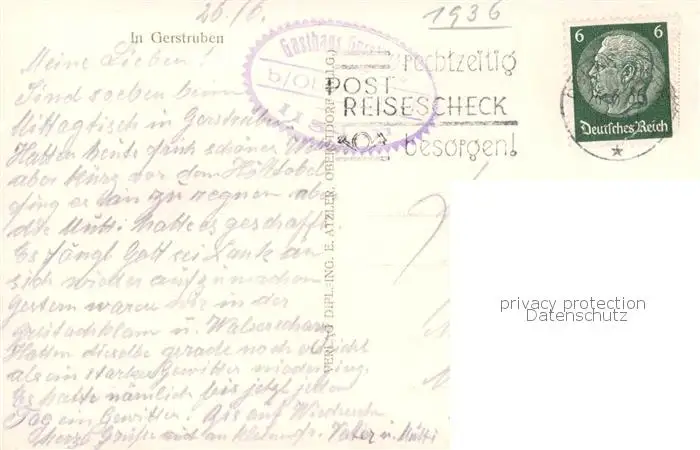 26./6.
1936
In Gerstruben
Meine Lieben!
Sind soeben beim
Mittagstisch in Gerstruben
Hatten heute früh schönes
aber kurz vor dem Hölltobel
fing er an zu regnen aber
die Mutti hatte es geschafft.
Es fängt Gott sei Dank an
sich wieder aufzumachen
Gestern waren wir in der
Breitachklam u. Walserschanz
Hatten dieselbe gerade noch erreicht
als ein starkes Gewitter niederging.
Es hatte nämlich bis jetzt jeden
Tag ein Gewitter. Bis auf Wiedersehn
Herzl. Grüße Vater u. Mutti
Gasthaus
rechtzeitig
POST
REISESCHECK
besorgen!
6 6
Deutsches Reich
VERLAG DIPL. ING. E. ATZLER, OBERSTDORF
privacy protection
Datenschutz